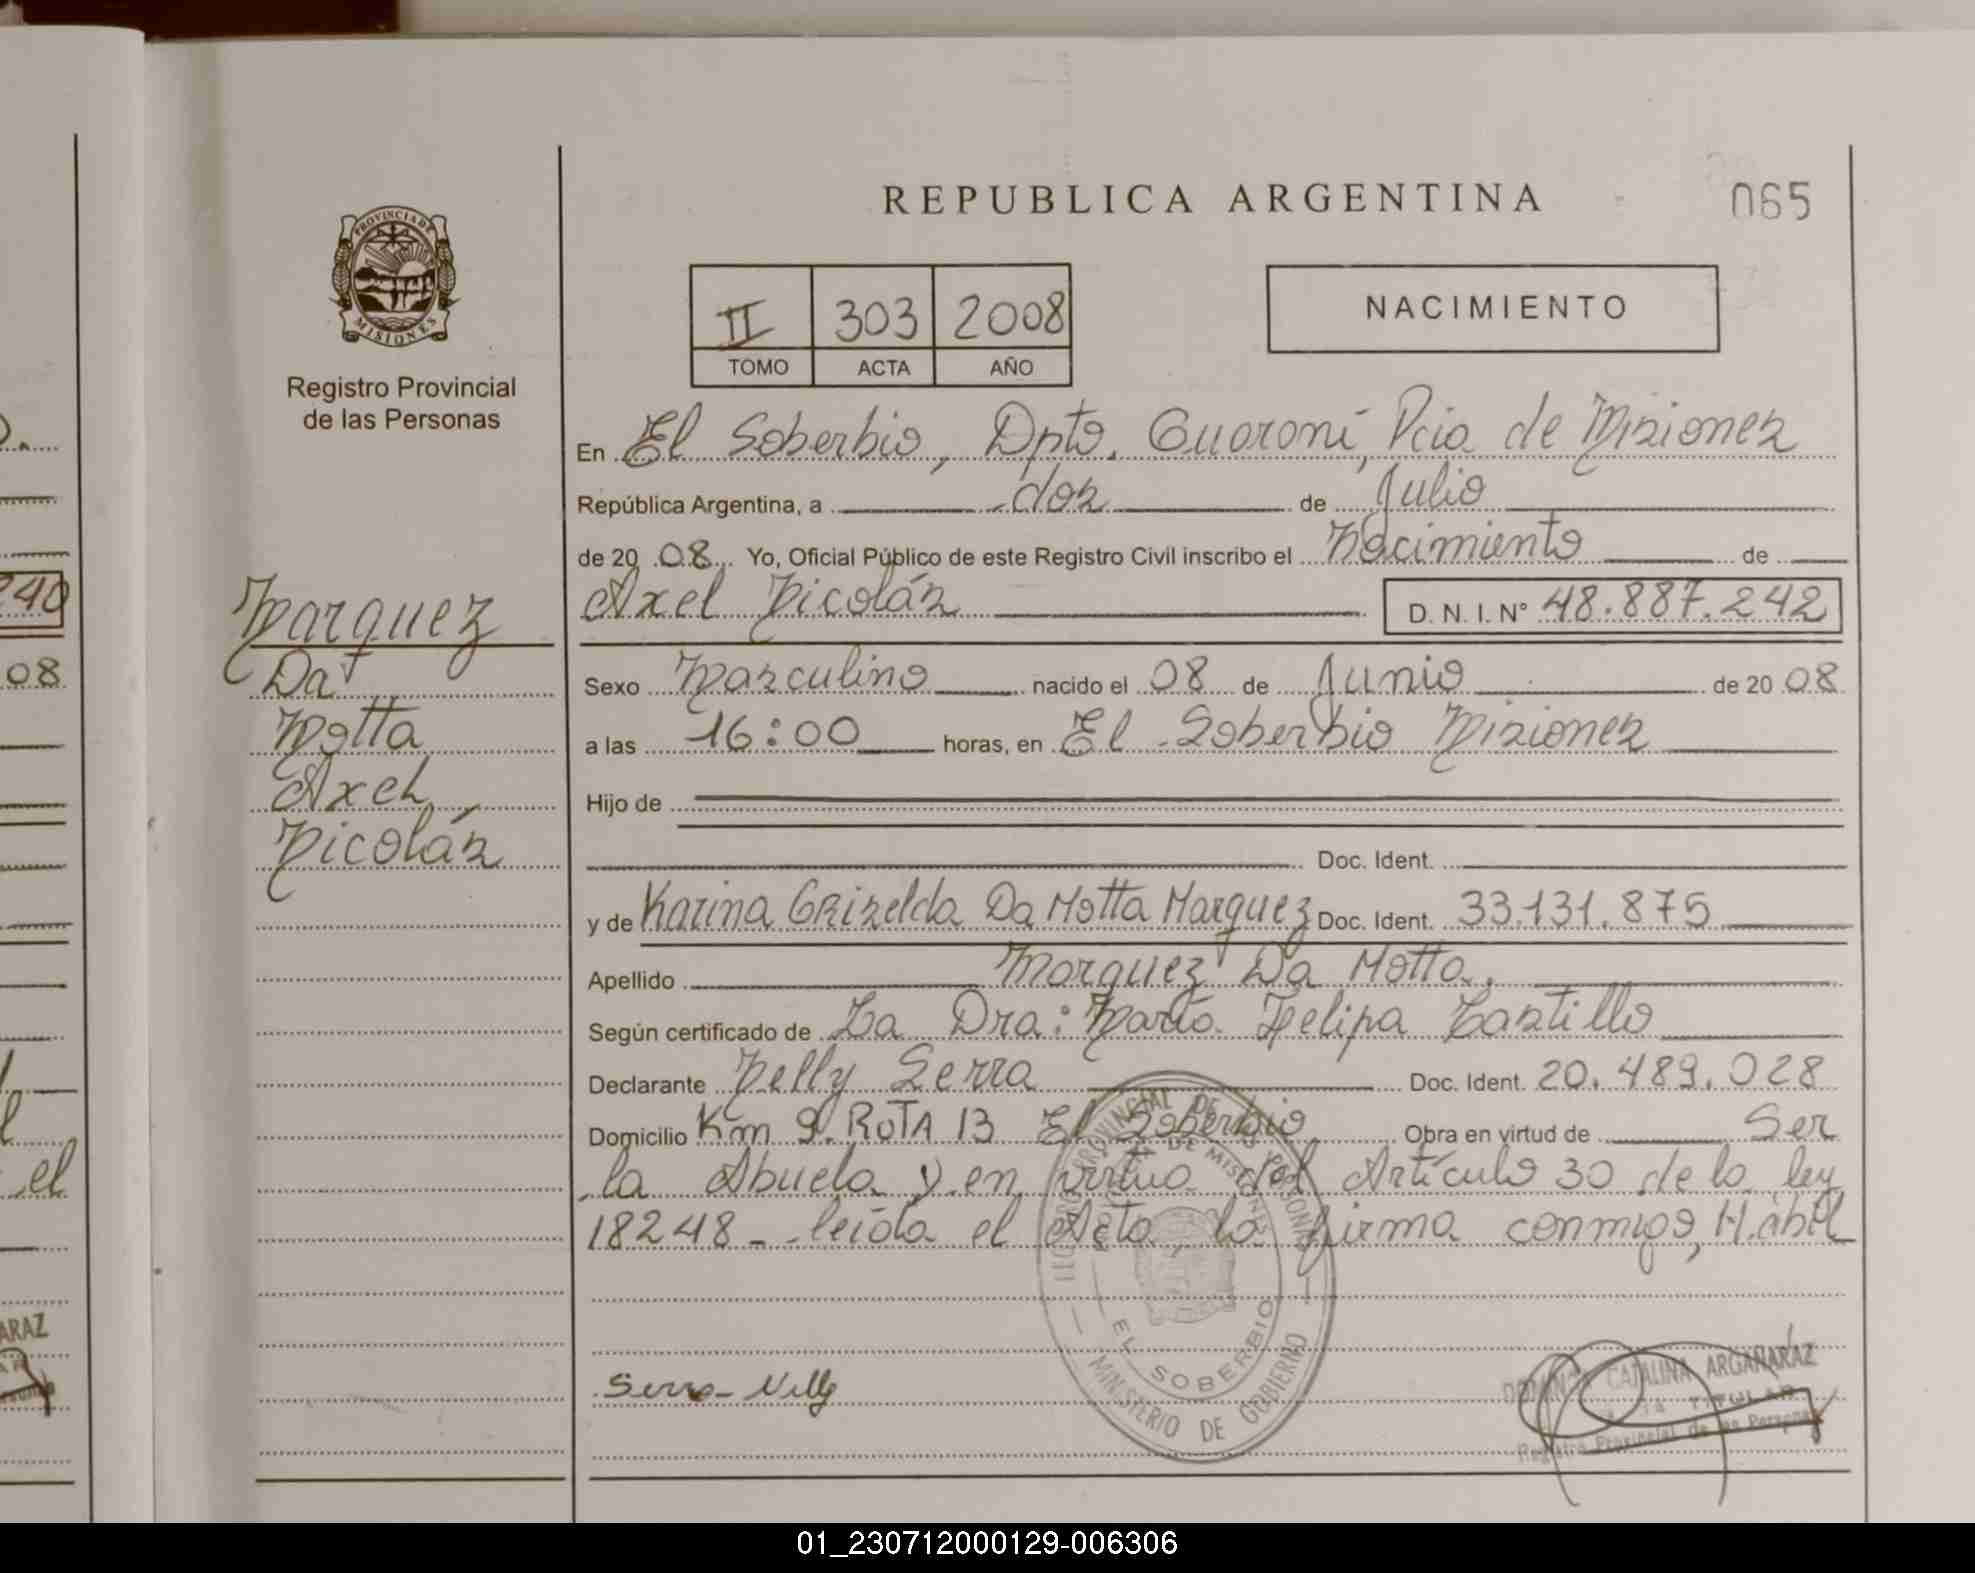 REPUBLICA ARGENTINA
065
PROVINCIA DE
MISIONES
Registro Provincial
de las Personas
II 303 2008
TOMO ACTA AÑO
NACIMIENTO
En El Soberbio, Dpto. Guaraní, Pcia de Misiones
República Argentina, a dos de Julio
de 20 08. Yo, Oficial Público de este Registro Civil inscribo el Nacimiento de
Axel Nicolás D.N.I.N° 48.887.242
Marquez
Da
Motta
Axel
Nicolás
Sexo Masculino nacido el 08 de Junio de 20 08
a las 16:00 horas, en El Soberbio Misiones
Hijo de
Doc. Ident.
y de Karina Griselda Da Motta Marquez Doc. Ident. 33.131.875
Apellido Marquez Da Motta.
Según certificado de La Dra: María Felipa Castillo
Declarante Nelly Serra Doc. Ident. 20.489.028
Domicilio Km 9. RUTA 13 El Soberbio Obra en virtud de Ser
la Abuela y en virtud del Artículo 30 de la ley
18248 - leída el Acta, la firma conmigo, H. abil
Serra Nelly
EL SOBERBIO
MINISTERIO DE GOBIERNO
CATALINA ARGAÑARAZ
TITULAR
Registro Provincial de las Personas
240
08
el
ARAZ
01_230712000129-006306